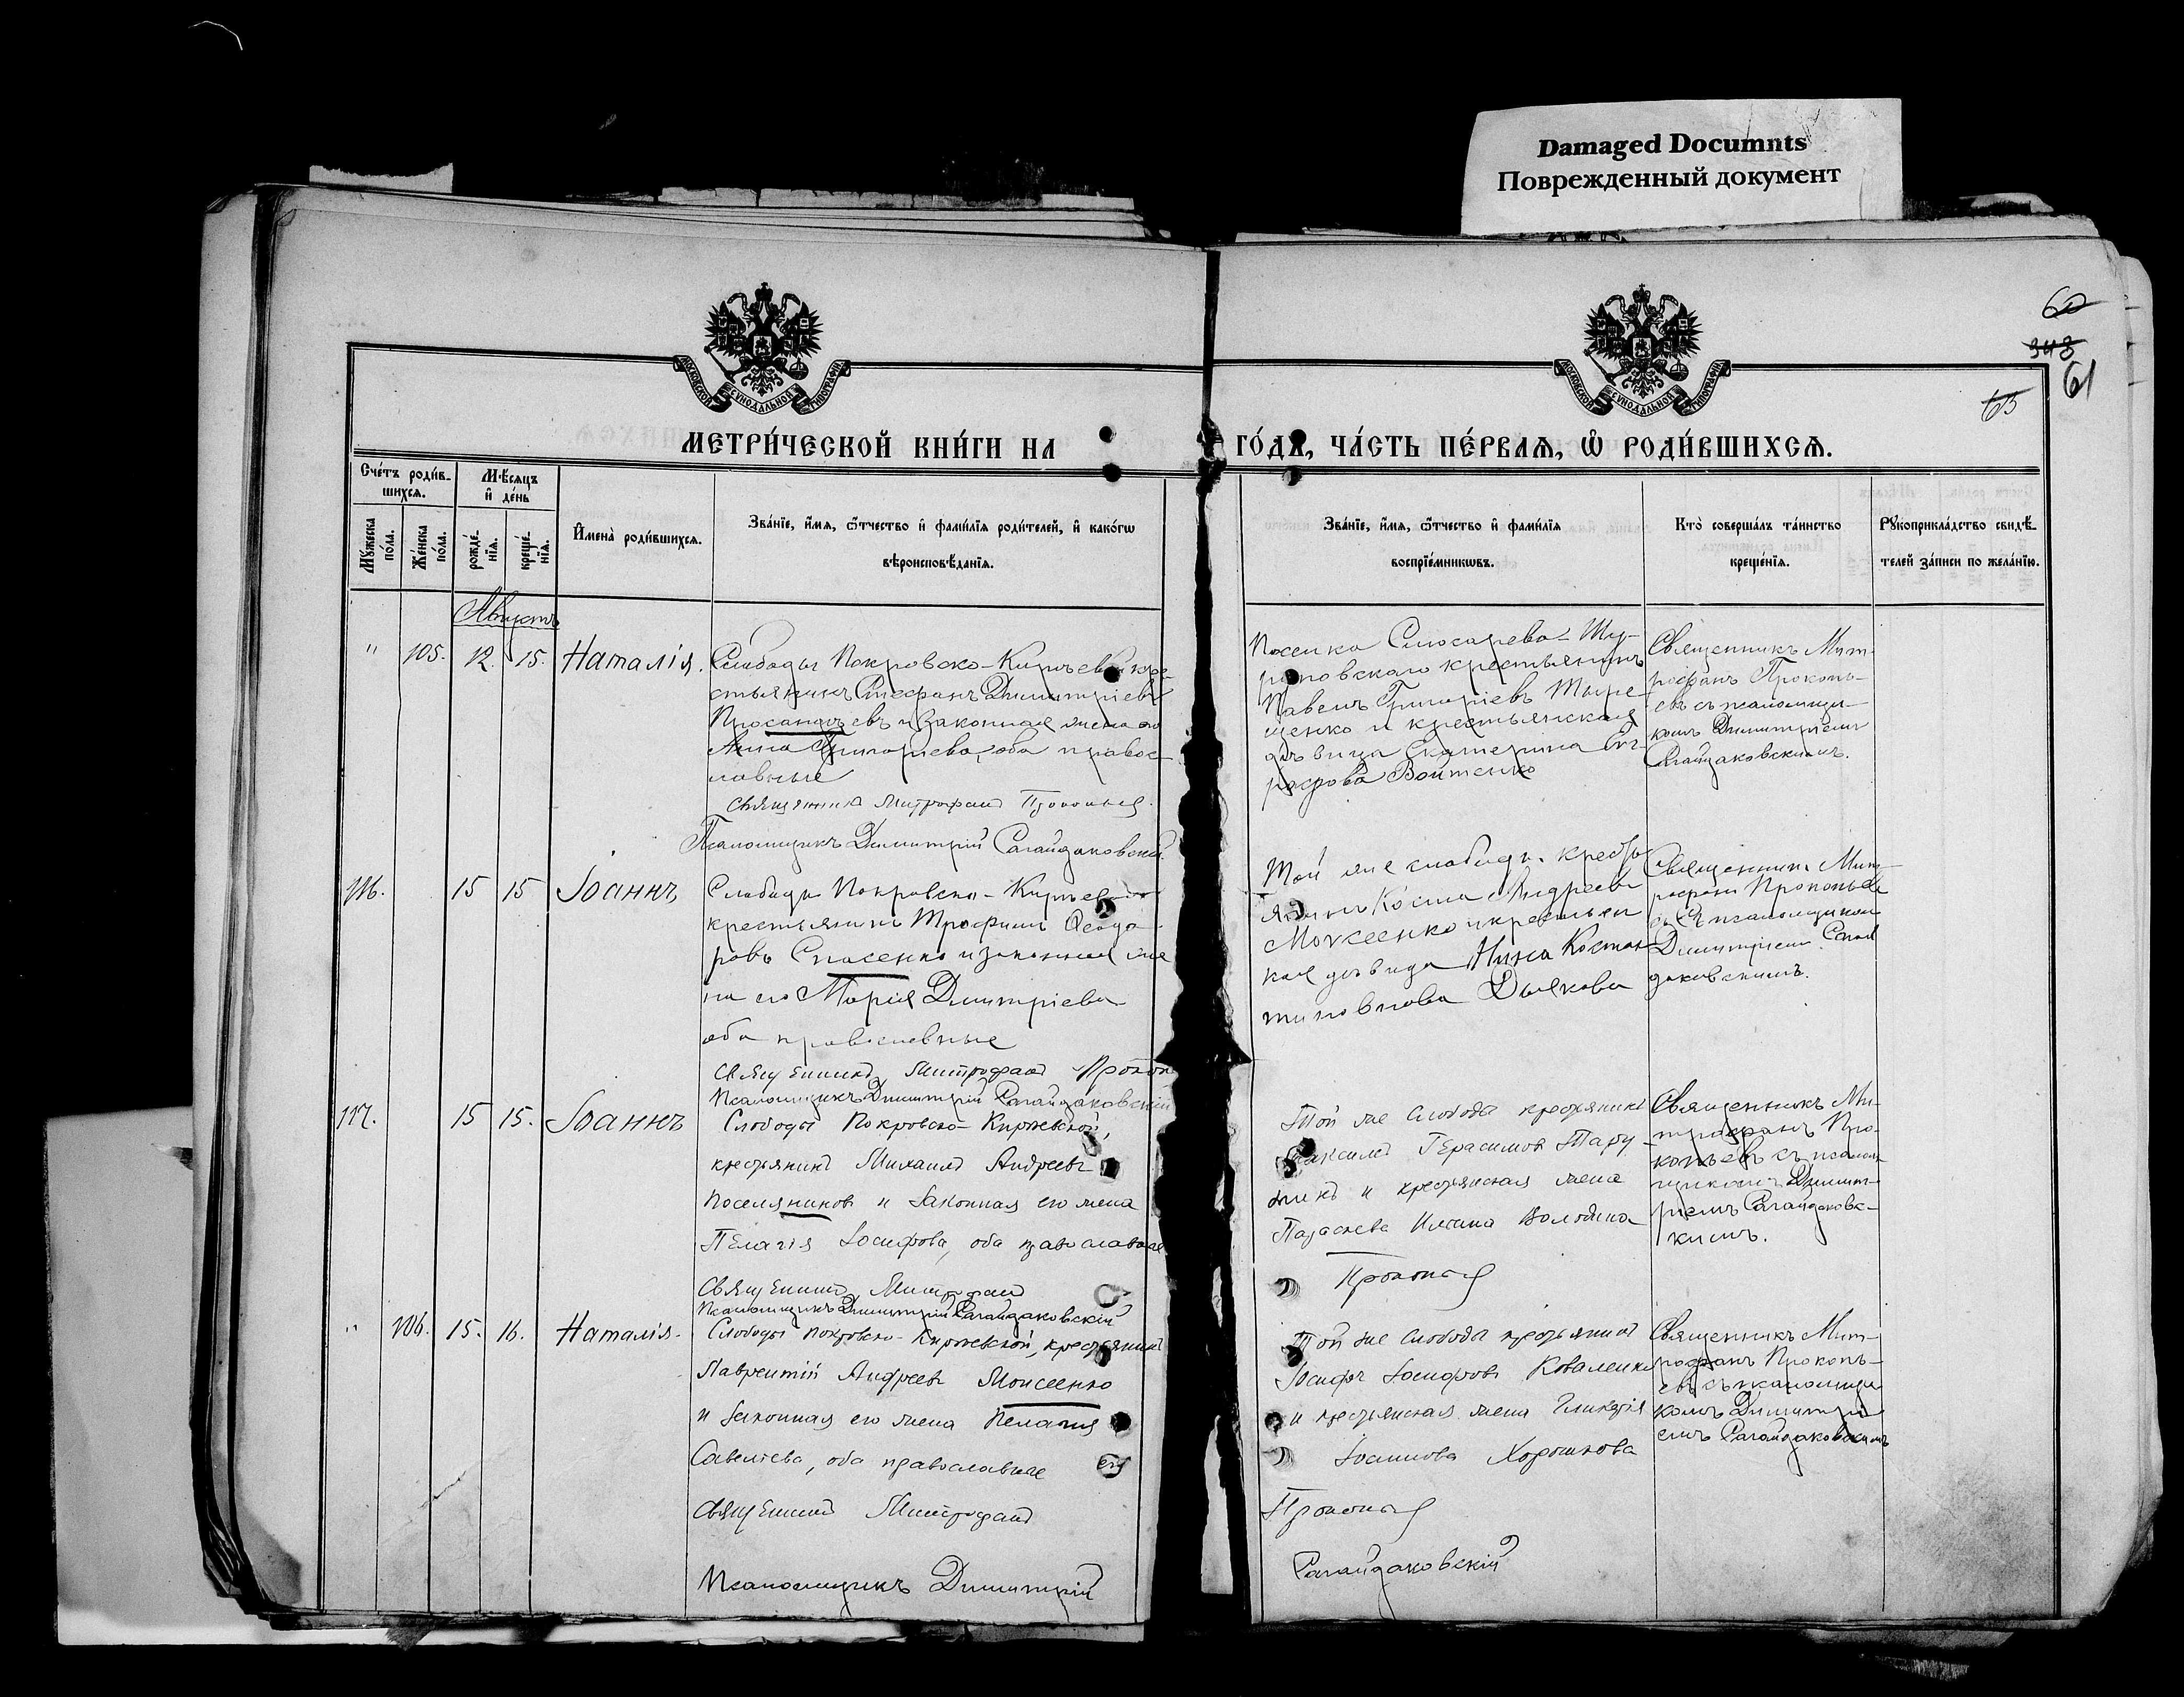 Damaged Documnts
Поврежденный документ
60
348
61
65
МОСКОВСКОЙ СУНОДАЛЬНОЙ ТИПОГРАФІИ
МОСКОВСКОЙ СУНОДАЛЬНОЙ ТИПОГРАФІИ
МЕТРИ́ЧЕСКОЙ КНИ́ГИ НА
ГО́ДЪ, ЧА́СТЬ ПЕ́РВАѦ, Ѡ РОДИ́ВШИХСѦ.
Сче́тъ роди́в-
шихсѧ.
Мѣ́сѧцъ
и҆ де́нь
Мꙋ́жеска
по́ла.
Же́нска
по́ла.
рожде́-
нїѧ.
креще́-
нїѧ.
И҆мена̀ роди́вшихсѧ.
Зва́нїе, и҆́мѧ, ѻ҆́тчество и҆ фами́лїѧ роди́телей, и҆ како́гѡ
вѣроисповѣ́данїѧ.
Зва́нїе, и҆́мѧ, ѻ҆́тчество и҆ фами́лїѧ
воспрїе́мникѡвъ.
Кто̀ соверша́лъ та́инство
креще́нїѧ.
Рꙋкоприкла́дство свидѣ́-
телей за́писи по жела́нїю.
Августъ
" 105. 12. 15. Наталія.
Слободы Покровско-Киръевской кре-
стьянинъ Стефанъ Димитріевъ
и законная жена его
Анна Григорьева, оба правос-
лавные
Священникъ Митрофанъ Прокопьев
Псаломщикъ Димитрій Сагайдаковскій
Поселка Слюсарево-
крестьянинъ
Павелъ Григоріевъ Тыре-
щенко и крестьянская
дѣвица Екатерина
Войтенко
Священникъ Мит-
рофанъ Прокопь-
евъ съ псаломщи-
комъ Димитріемъ
Сагайдаковскимъ.
116. 15 15 Іоаннъ
Слободы Покровско-Киръевской
крестьянинъ Трофимъ Ѳеодо-
ровъ Спасенко и законная же
на его Марія Димитріева
оба православные
Священникъ Митрофанъ Прокоп
Псаломщикъ Димитрій Сагайдаковскій
Той же слободы крестья
янинъ Косма Андреевъ
Моисеенко и крестьян
кая дѣвица Нина Констан
тиновнова Дьякова
Священникъ Мит
рофанъ Прокопьев
съ псаломщиком
Димитріемъ Сагай
даковскимъ.
117. 15 15. Іоаннъ
Слободы Покровско-Киръевской,
крестьянинъ Михаилъ Андреевъ
Поселянниковъ и законная его жена
Пелагія Іосифова, оба православные
Священникъ Митрофанъ
Псаломщикъ Димитрій Сагайдаковскій
Той же слободы крестьянинъ
Максимъ Герасимовъ
и крестьянская жена
Параскева Ильина
Прокопьев
Священникъ Ми-
трофанъ Про-
копьевъ съ псалом
щикомъ Димит-
ріемъ Сагайдаковс-
кимъ.
" 106. 15. 16. Наталія.
Слободы Покровско-Киръевской, крестьянинъ
Лаврентій Андреевъ Моисеенко
и законная его жена Пелагія
Савельева, оба православные
Священникъ Митрофанъ
Псаломщикъ Димитрій
Той же слободы крестьянинъ
Іосифъ Іосифовъ Коваленко
и крестьянская жена Гликерія
Іоаннова Хорошкова
Прокопьев
Сагайдаковскій
Священникъ Мит-
рофанъ Прокопь-
евъ съ псаломщи
комъ Димитрі
емъ Сагайдаковскимъ